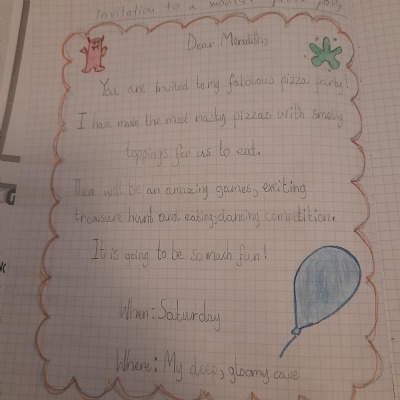 Invitation to a monster pizza party
Dear Meredith,
You are invited to my fabolous pizza party!
I have made the most nasty pizzas with smelly
toppings for us to eat.
There will be an amazing games, exciting
treasure hunt and eating, dancing
It is going to be so much fun!
When: Saturday
Where: My deep, gloomy cave